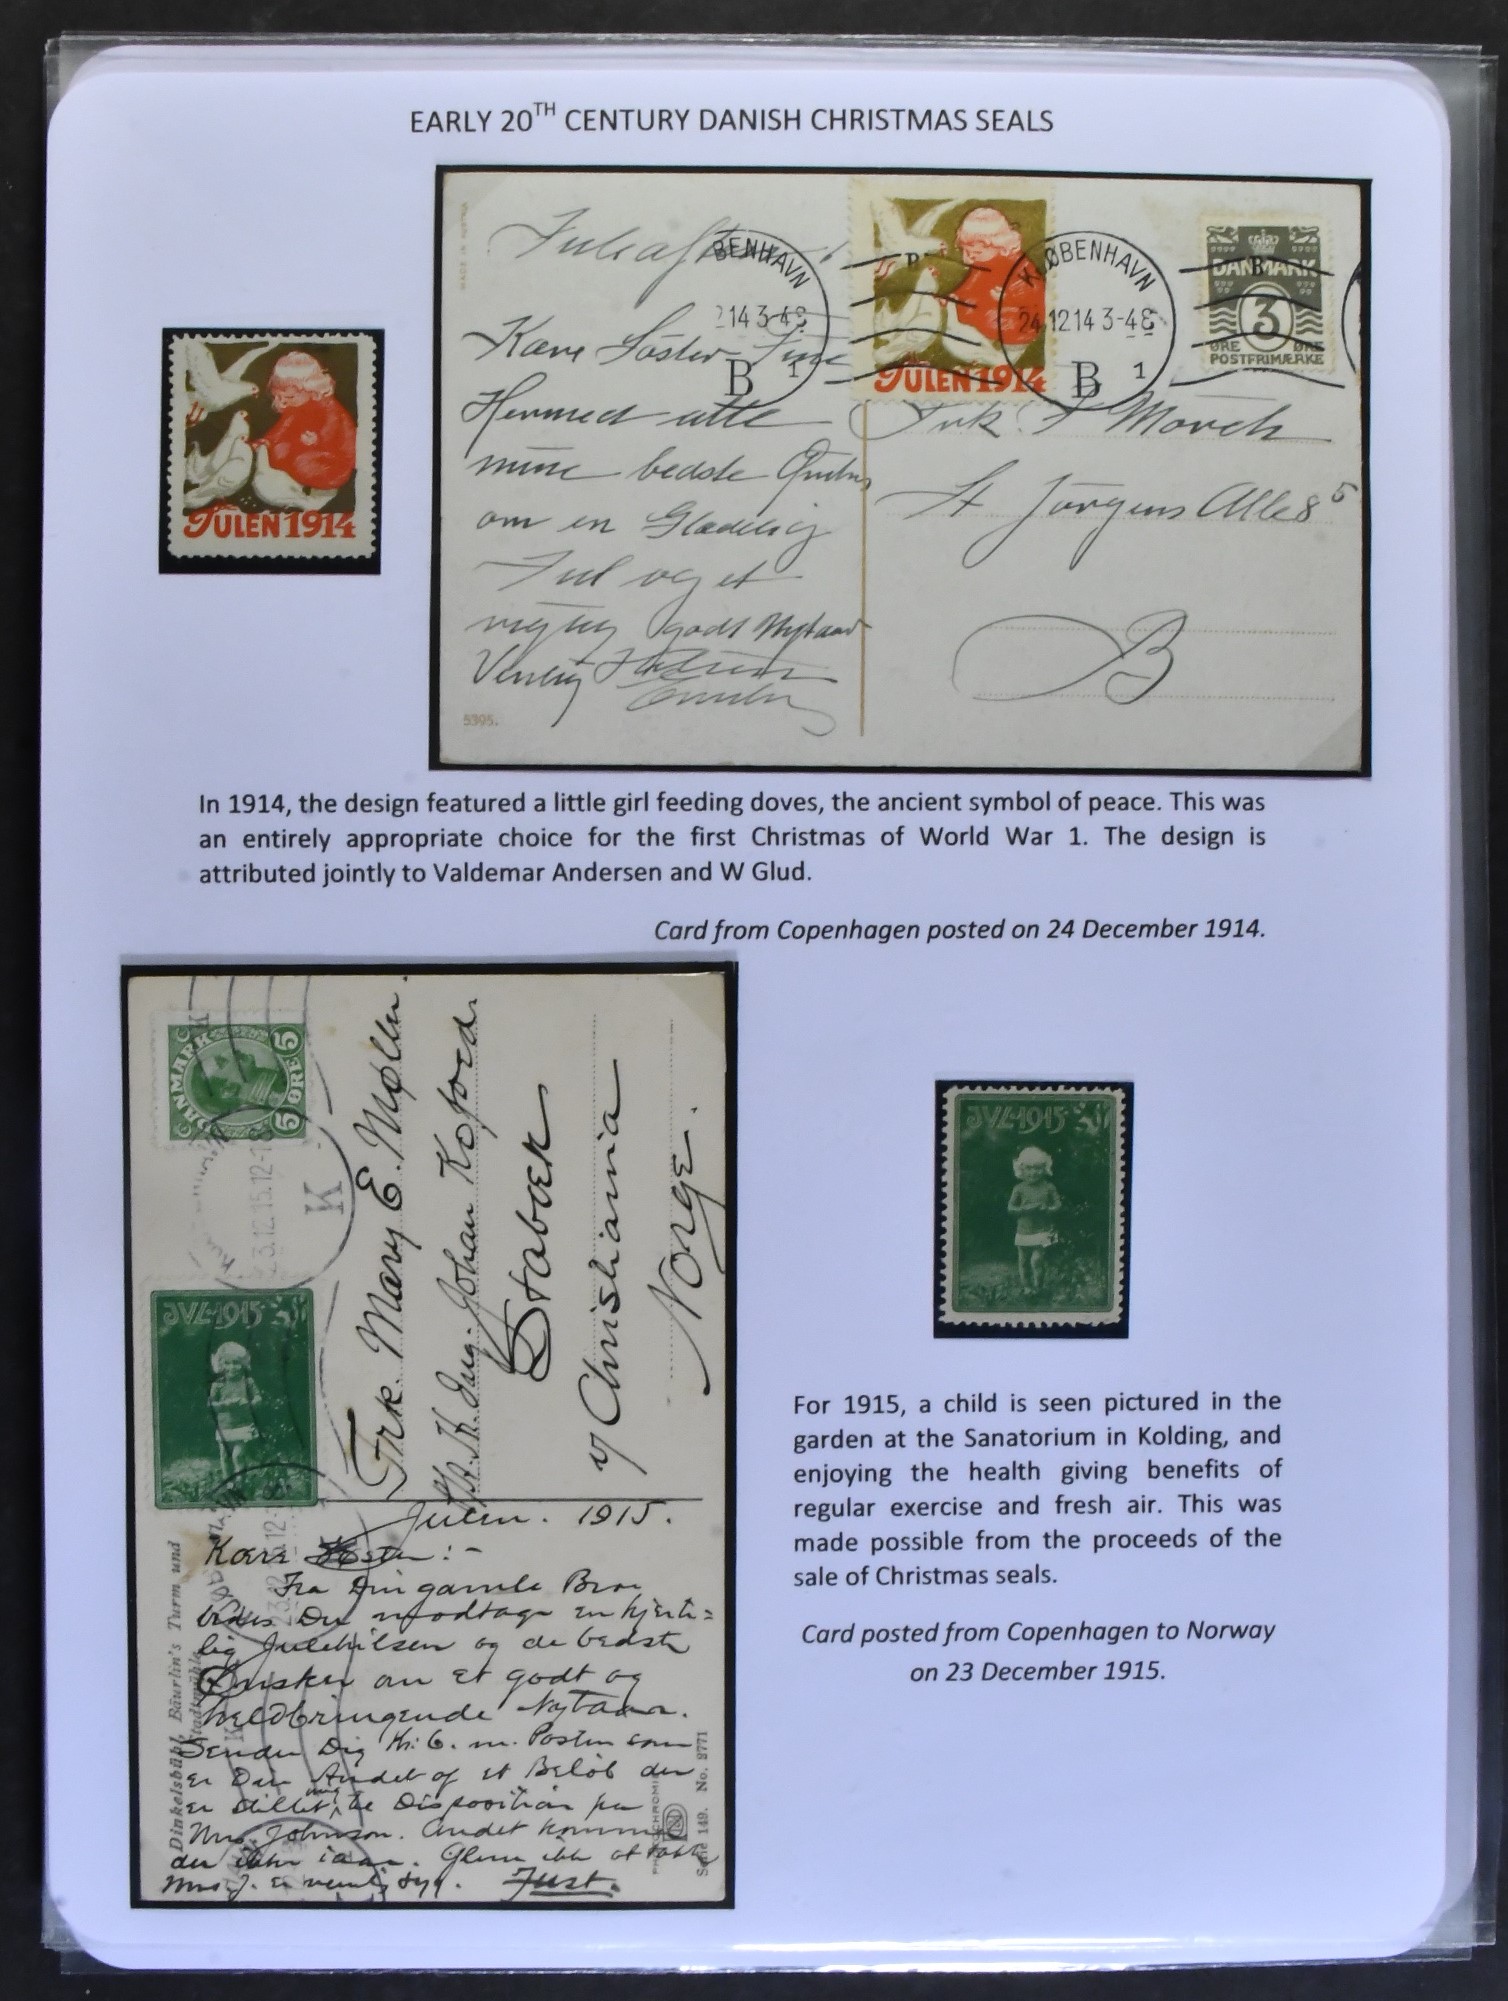 EARLY 20TH CENTURY DANISH CHRISTMAS SEALS
MADE IN AUSTRIA
Juleaften
Kære Søster
Hermed alle
mine bedste
om en Glædelig
Jul og et
godt Nytaar
Venlig
5395.
BENHAVN
214 3-4 S
B 1
JULEN 1914
B
KJØBENHAVN
24.12.14 3-4 S
B 1
DANMARK
B
3
ØRE ØRE
POSTFRIMÆRKE
Frk. F Mørch
St Jörgens Alle 8 5
B
JULEN 1914
In 1914, the design featured a little girl feeding doves, the ancient symbol of peace. This was
an entirely appropriate choice for the first Christmas of World War 1. The design is
attributed jointly to Valdemar Andersen and W Glud.
Card from Copenhagen posted on 24 December 1914.
DANMARK
5 ØRE 5
K
23.12.15.12-1
JVL·1915
Frk. Mary E. Møller.
Johan Koford.
Stabæk
v/ Christiania
Norge.
Julen. 1915.
Kære :-
Fra Din gamle Bror
Du modtage en hjerte=
lig Julehilsen og de bedste
Ønsker om et godt og
heldbringende Nytaar.
Sender Dig Kr: 6. m. Posten som
er Din Andel af et Beløb der
er stillet mig til Disposition fra
Mrs. Johnson. Andet kommer
der ikke iaar. Glem ikke at takke
Mrs J. Just.
Dinkelsbühl, Bäurlin's Turm und
Stadtmühle
PHOTOCHROMIE
Serie 149. No. 2771
JVL·1915
For 1915, a child is seen pictured in the
garden at the Sanatorium in Kolding, and
enjoying the health giving benefits of
regular exercise and fresh air. This was
made possible from the proceeds of the
sale of Christmas seals.
Card posted from Copenhagen to Norway
on 23 December 1915.